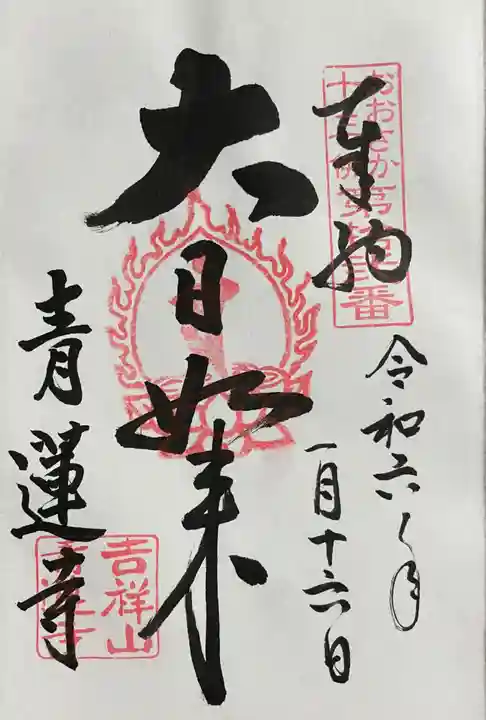 奉納
おおさか十三仏
第十二番
令和六年
一月十六日
大日如来
青蓮寺
吉祥山
青蓮寺